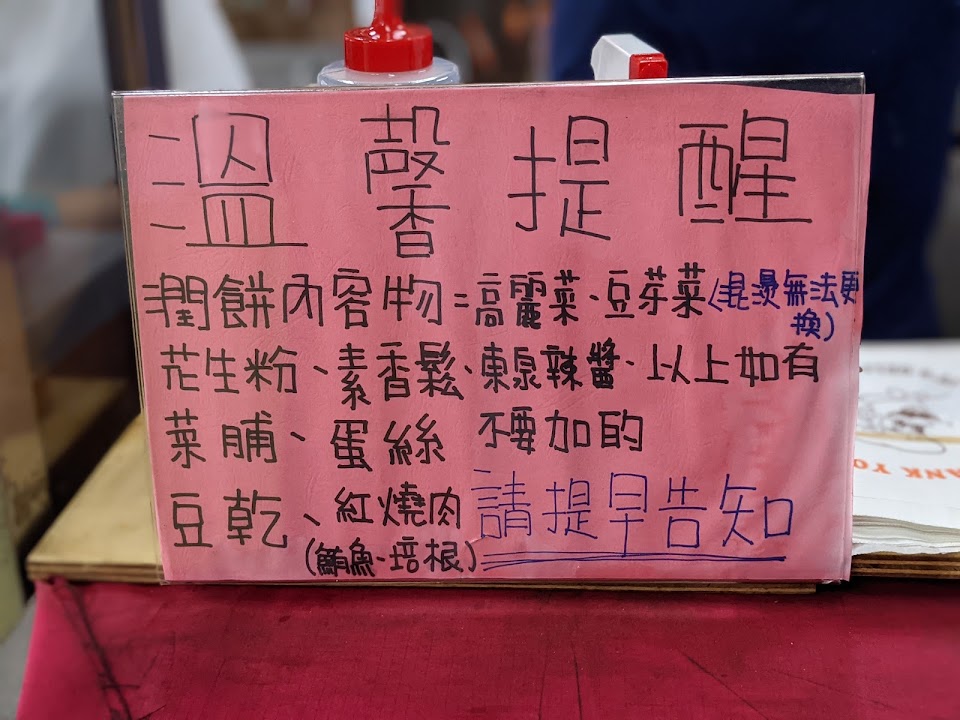 溫馨提醒
潤餅內容物=高麗菜、豆芽菜(混燙無法更換)
花生粉、素香鬆、東泉辣醬、以上如有
菜脯、蛋絲 不要加的
豆乾、紅燒肉 請提早告知
(鮪魚、培根)
ANK YO